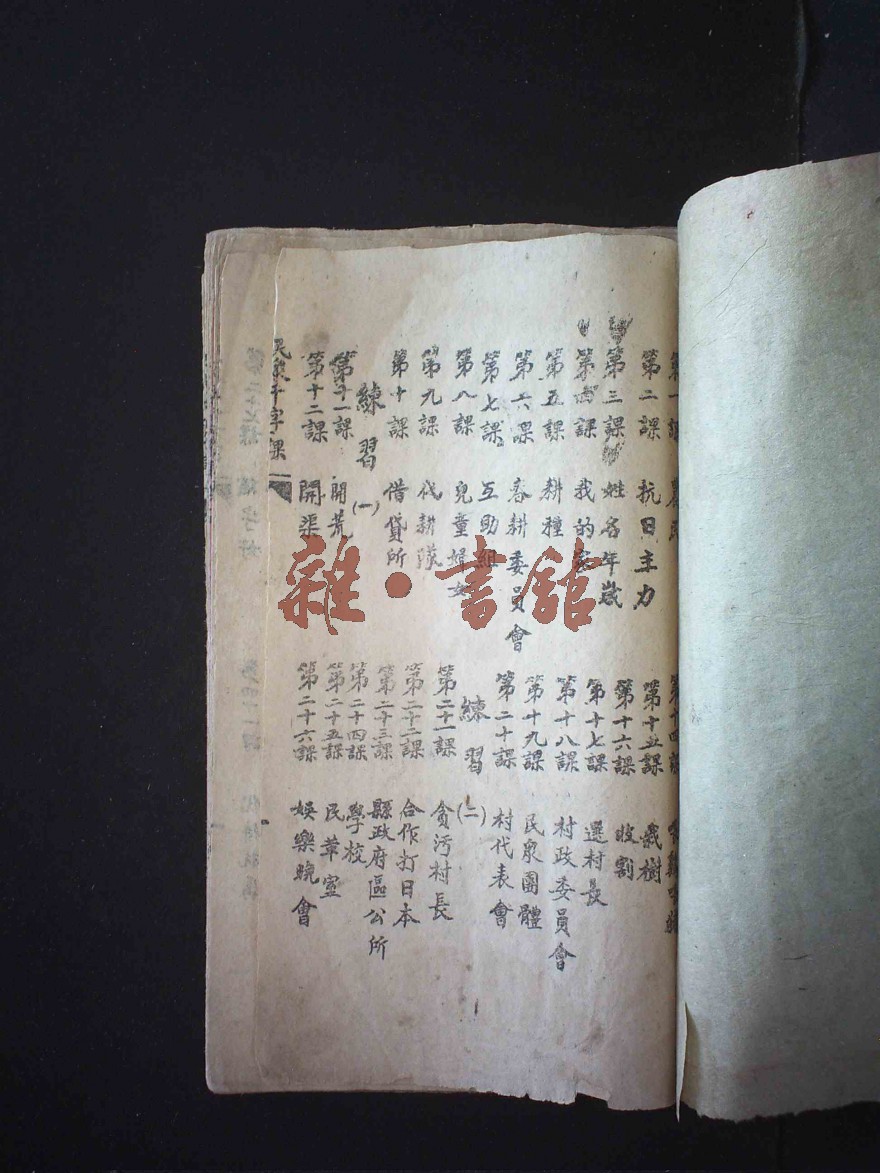 第一課 農民
第二課 抗日主力
第三課 姓名年歲
第四課 我的家
第五課 耕種
第六課 春耕委員會
第七課 互助組
第八課 兒童婦女
第九課 代耕隊
第十課 借貸所
練習(一)
第十一課 開荒
第十二課 開渠
第十四課
第十五課 栽樹
第十六課 收割
第十七課 選村長
第十八課 村政委員會
第十九課 民衆團體
第二十課 村代表會
練習(二)
第二十一課 貪污村長
第二十二課 合作打日本
第二十三課 縣政府區公所
第二十四課 學校
第二十五課 民革室
第二十六課 娛樂晚會
民衆千字課
雜·書館